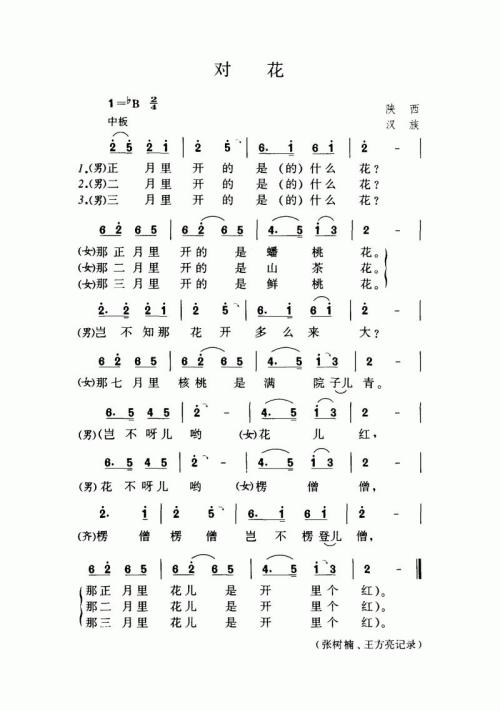 对 花
1=♭B 2/4
陕 西
中板
汉 族
2 5 2 1 2 5 | 2· 5 | 6· 1 6 1 | 2 - |
1.(男)正 月里 开 的 是 (的)什么 花?
2.(男)二 月里 开 的 是 (的)什么 花?
3.(男)三 月里 开 的 是 (的)什么 花?
6 2 6 5 | 6 2 6 2 | 4· 5 1 3 | 2 - |
(女)那 正 月里 开 的 是 蟠 桃 花。
(女)那 二 月里 开 的 是 山 茶 花。
(女)那 三 月里 开 的 是 鲜 桃 花。
2· 2 2 1 | 2 5 | 6· 1 6 1 | 2 - |
(男)岂 不 知那 花 开 多 么 来 大?
6 2 6 5 | 6 2 6 2 | 4· 5 1 3 | 2 - |
(女)那 七 月里 核 桃 是 满 院 子儿 青。
6· 5 4 5 | 2 - | 4· 5 1 3 | 2 - |
(男)(岂 不 呀儿 哟 (女)花 儿 红,
6· 5 4 5 | 2 - | 4· 5 1 3 | 2 - |
(男)花 不 呀儿 哟 (女)楞 僧 僧,
2· 1 | 2 5 | 6· 1 6 1 | 2 - |
(齐)楞 僧 楞 僧 岂 不 楞 登儿 僧,
6 2 6 5 | 6 2 6 2 | 4· 5 1 3 | 2 - ‖
那 正 月里 花儿 是 开 里 个 红)。
那 二 月里 花儿 是 开 里 个 红)。
那 三 月里 花儿 是 开 里 个 红)。
(张树楠、王方亮记录)